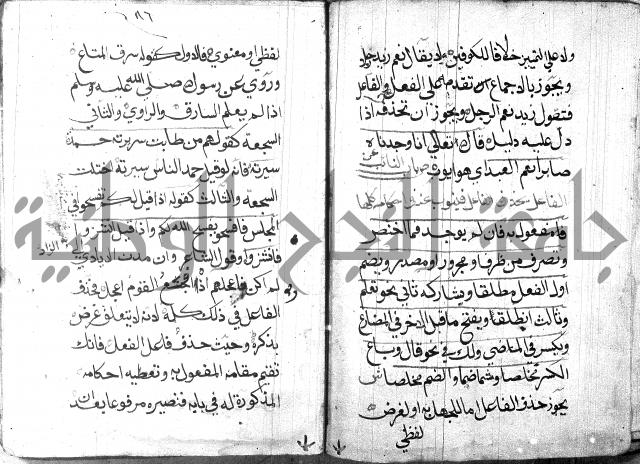 ولا على التمييز خلافا للكوفيين لا يقال نعم زيد رجلا
ويجوز بالاجماع ان تقدم على الفعل والفاعل
فتقول زيد نعم الرجل ويجوز ان تحذفه اذا
دل عليه دليل قال تعالى انا وجدناه
صابرا نعم العبد اي هو ايوب ص باب النائب عن
الفاعل يحذف الفاعل فينوب عنه في احكامه كلها
مفعول به فان لم يوجد فما اختص
وتصرف من ظرف او مجرور او مصدر ويضم
اول الفعل مطلقا ويشاركه ثاني نحو تعلم
وثالث انطلق ويفتح ما قبل الاخر في المضارع
ويكسر في الماضي ولك في نحو قال وباع
الكسر مخلصا ومشما ضما والضم مخلصا ش
يجوز حذف الفاعل اما للجهل به او لغرض
لفظي
لفظي او معنوي فالاول كقوله سرق المتاع
وروي عن رسول صلى الله عليه وسلم
اذا لم يعلم السارق والراوي والثاني
السجعة كقولهم من طابت سريرته حمدت
سيرته فانه لو قيل حمد الناس سيرته اختلت
السجعة والثالث كقوله اذا قيل لكم تفسحوا في
المجلس فافسحوا يفسح الله لكم واذا قيل انشزوا
فانشزوا وقول الشاعر وان مدت الايدي الى الزاد
لم اكن باعجلهم اذ اجشع القوم اعجل فحذف
الفاعل في ذلك كله لانه لا يتعلق غرض
بذكره وحيث حذف فاعل الفعل فانك
تقيم مقامه المفعول به وتعطيه احكامه
المذكورة له في بابه فتصيره مرفوعا بعد ان
جامعة النجاح الوطنية